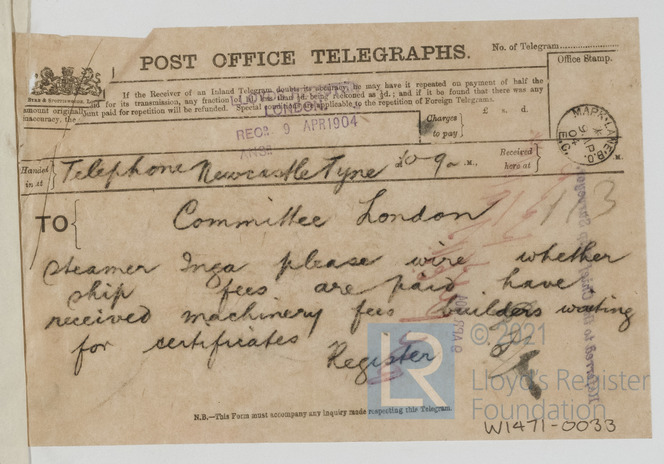 POST OFFICE TELEGRAPHS.
No. of Telegram
Office Stamp.
If the Receiver of an Inland Telegram doubts its accuracy, he may have it repeated on payment of half the
amount originally paid for its transmission, any fraction of 1d. less than ½d. being reckoned as ½d.; and if it be found that there was any
inaccuracy, the amount paid for repetition will be refunded. Special conditions are applicable to the repetition of Foreign Telegrams.
LONDON
RECD 9 APR 1904
ANSD
Charges
to pay
£ s. d.
MARK LANE B.O.
E.C.
AP 9
04
Handed
in at
Telephone Newcastle Tyne
M.
Received
here at
M.
TO
Committee London
steamer Inga please wire whether
ship fees are paid have
received machinery fees builders waiting
for certificates
Register
© 2021
LR
Lloyd's Register
Foundation
N.B.—This Form must accompany any inquiry made respecting this Telegram.
W1471-0033